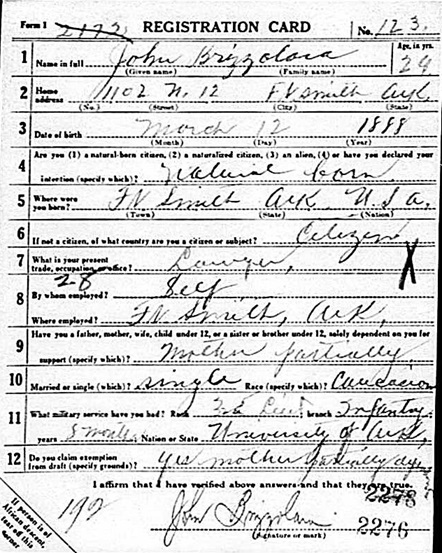 Form 1 2172 REGISTRATION CARD No. 123
1 Name in full John Brizzolara Age, in yrs. 29
(Given name) (Family name)
2 Home address 1102 N. 12 Ft Smith Ark.
(No.) (Street) (City) (State)
3 Date of birth March 12 1888
(Month) (Day) (Year)
4 Are you (1) a natural-born citizen, (2) a naturalized citizen, (3) an alien, (4) or have you declared your
intention (specify which)? Natural born
5 Where were you born? Ft Smith Ark U.S.A.
(Town) (State) (Nation)
6 If not a citizen, of what country are you a citizen or subject? Citizen
7 What is your present trade, occupation, or office? Lawyer, X
28
8 By whom employed? Self
Where employed? Ft Smith, Ark.
9 Have you a father, mother, wife, child under 12, or a sister or brother under 12, solely dependent on you for
support (specify which)? Mother partially
10 Married or single (which)? single Race (specify which)? Caucasian
11 What military service have you had? Rank 2nd Lieut branch Infantry
years 8 months Nation or State University of Ark.
12 Do you claim exemption from draft (specify grounds)? yes mother partially dep
I affirm that I have verified above answers and that they are true.
2278
192 John Brizzolara
(Signature or mark) 2276
If person is of
African descent,
tear off this
corner